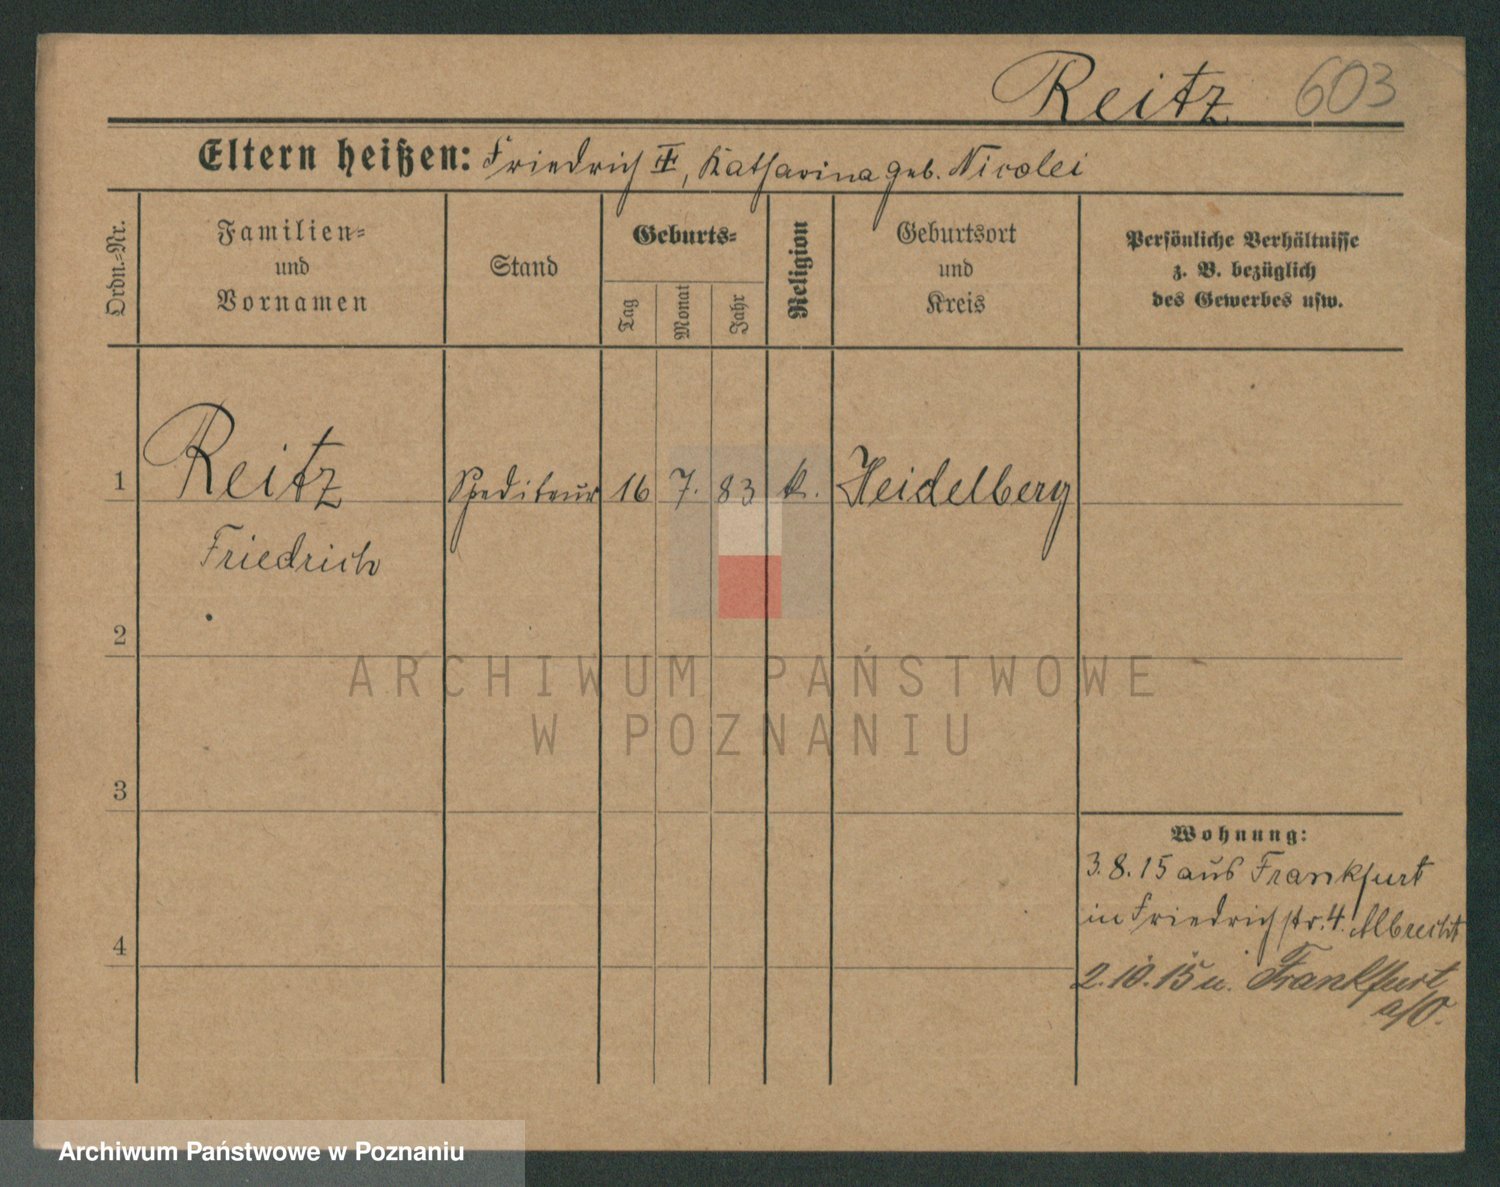 Reitz 603
Eltern heißen: Friedrich II, Katharina geb. Nicolei
Ordn.-Nr.
Familien-
und
Vornamen
Stand
Geburts-
Tag
Monat
Jahr
Religion
Geburtsort
und
Kreis
Persönliche Verhältnisse
z. B. bezüglich
des Gewerbes usw.
1 Reitz Spediteur 16 7. 83 k. Heidelberg
Friedrich
2
ARCHIWUM PAŃSTWOWE
W POZNANIU
3
Wohnung:
3.8.15 aus Frankfurt
in Friedrichstr. 4. Albrecht
4
2.10.15 n. Frankfurt
a/O.
Archiwum Państwowe w Poznaniu